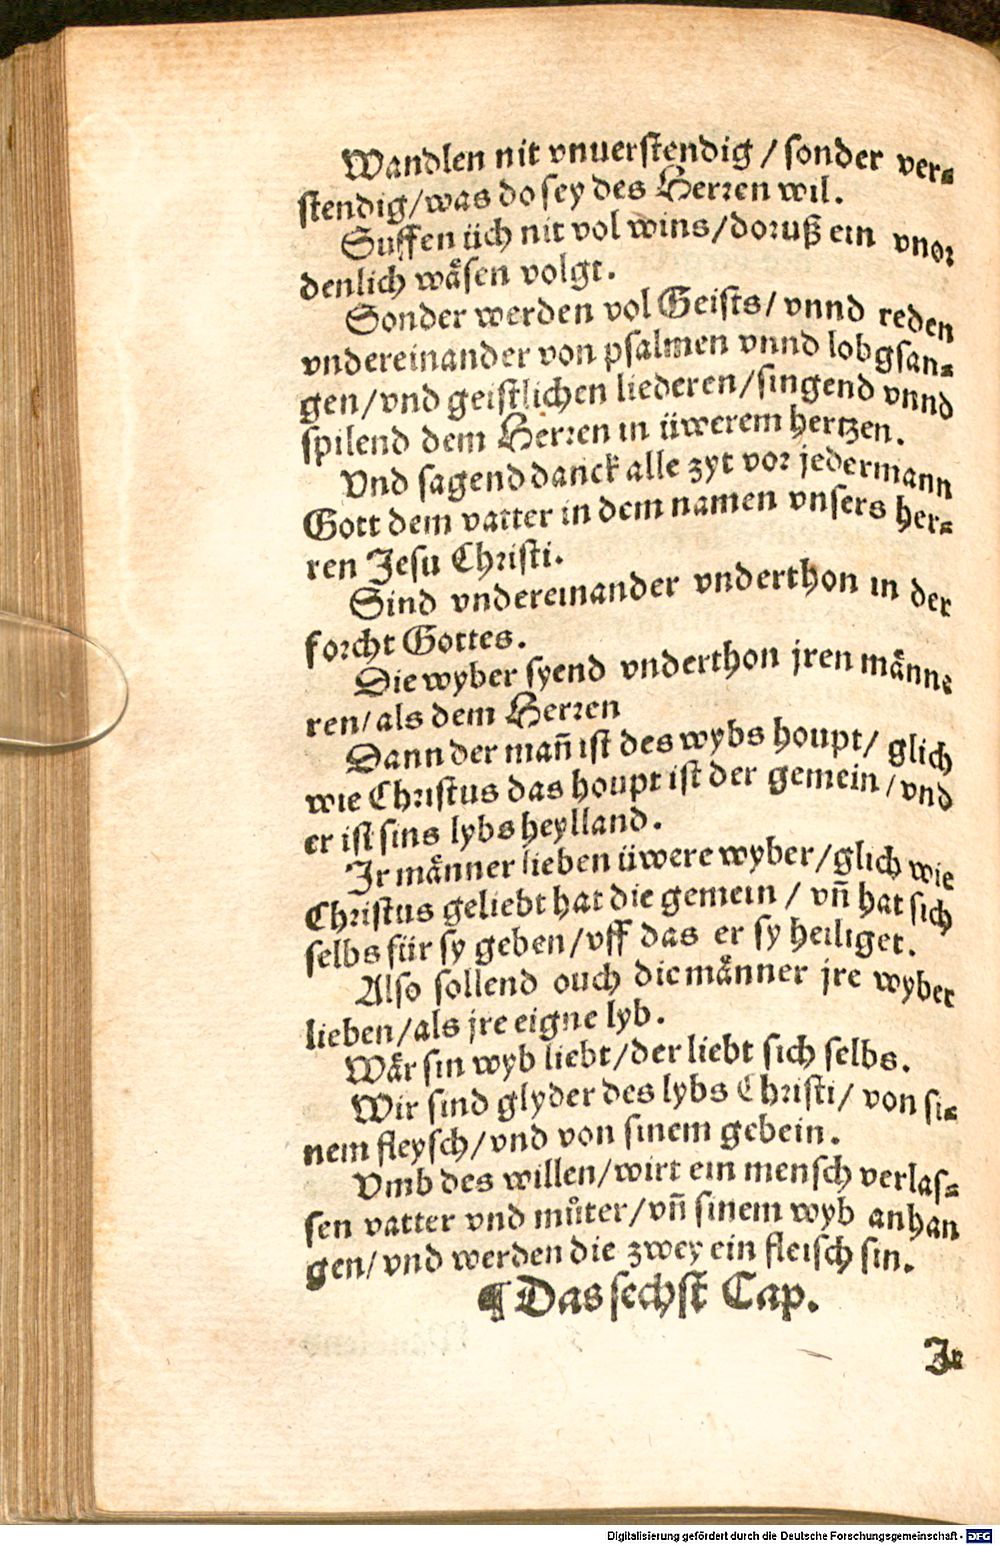 Wandlen nit vnuerstendig / sonder ver⸗
stendig/was do sey des Herren wil.
Suffen üch nit vol wins/doruß ein vnor
denlich wåsen volgt.
Sonder werden vol Geists/ vnnd reden
vndereinander von psalmen vnnd lobgsan⸗
gen/vnd geistlichen liederen/singend vnnd
spilend dem Herren in üwerem hertzen.
Vnd sagend danck alle zyt vor jedermann
Gott dem vatter in dem namen vnsers her⸗
ren Jesu Christi.
Sind vndereinander vnderthon in der
forcht Gottes.
Die wyber syend vnderthon jren månne
ren/als dem Herren
Dann der mañ ist des wybs houpt/ glich
wie Christus das houpt ist der gemein /vnd
er ist sins lybs heylland.
Jr månner lieben üwere wyber/glich wie
Christus geliebt hat die gemein / vñ hat sich
selbs für sy geben/vff das er sy heiliget.
Also sollend ouch die månner jre wyber
lieben/als jre eigne lyb.
Wår sin wyb liebt/der liebt sich selbs.
Wir sind glyder des lybs Christi/ von si⸗
nem fleysch/vnd von sinem gebein.
Vmb des willen/wirt ein mensch verlas⸗
sen vatter vnd můter/vñ sinem wyb anhan
gen/vnd werden die zwey ein fleisch sin.
¶ Das sechst Cap.
Jr
Digitalisierung gefördert durch die Deutsche Forschungsgemeinschaft - DFG